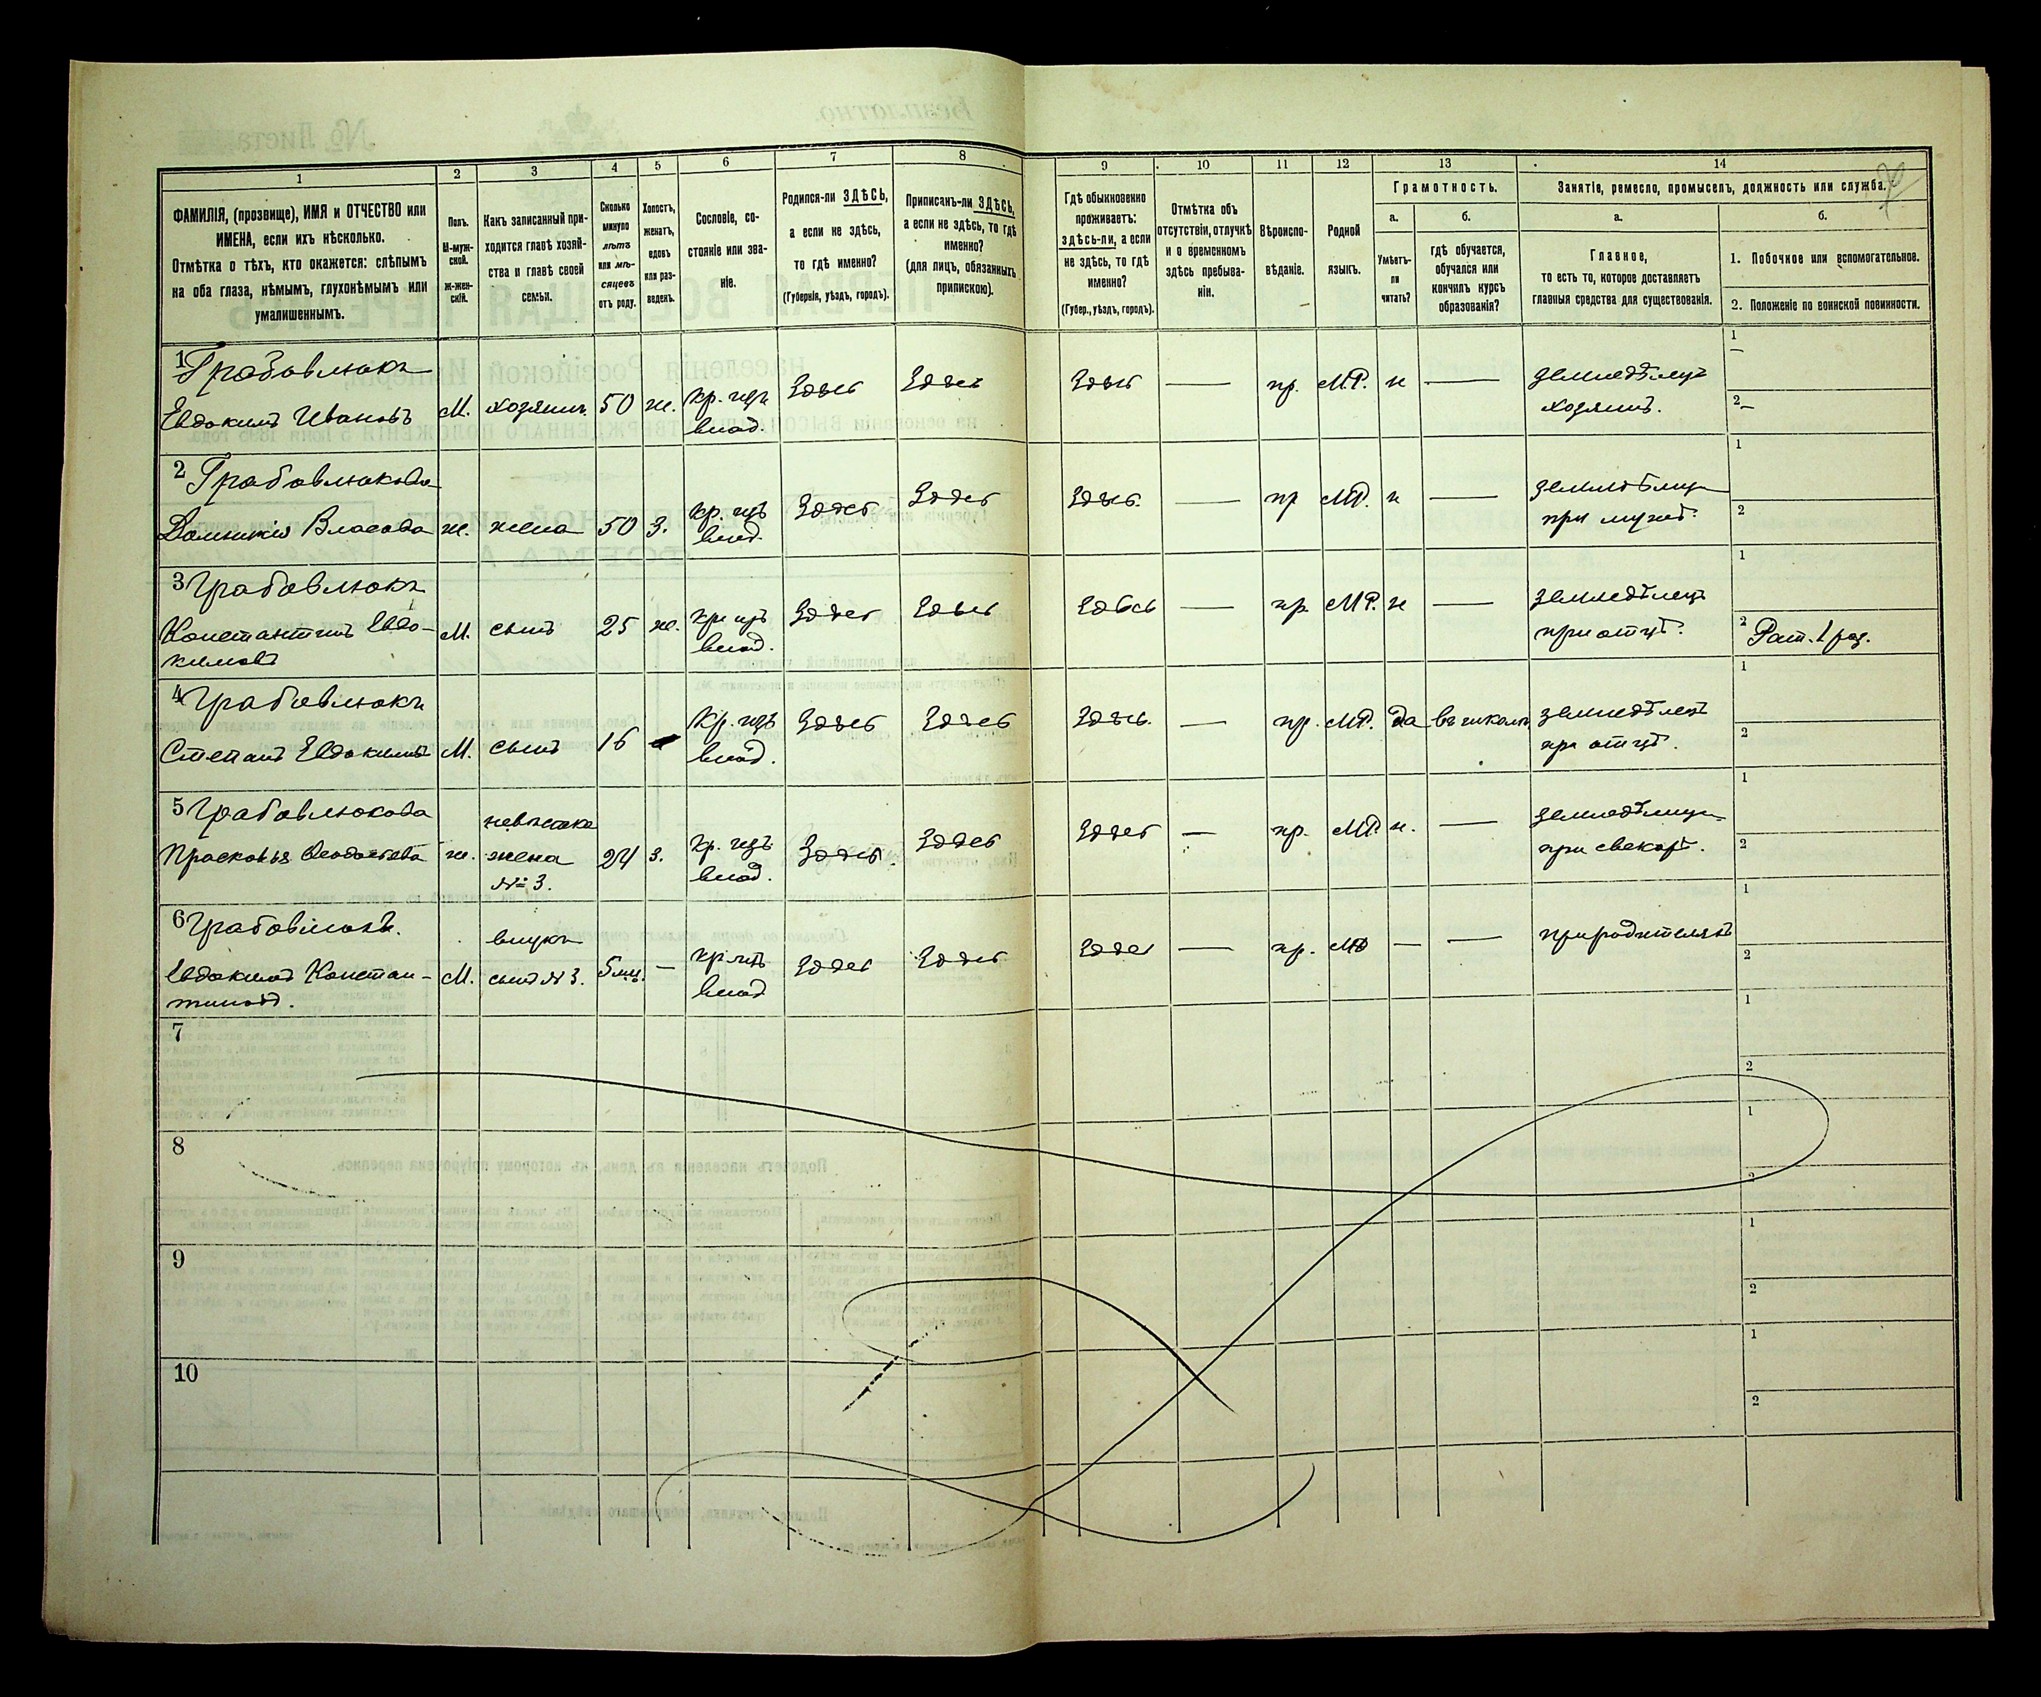 1 2 3 4 5 6 7 8 9 10 11 12 13 14
ФАМИЛІЯ, (прозвище), ИМЯ и ОТЧЕСТВО или
ИМЕНА, если ихъ нѣсколько.
Отмѣтка о тѣхъ, кто окажется: слѣпымъ
на оба глаза, нѣмымъ, глухонѣмымъ или
умалишеннымъ.
Полъ.
М-муж-
ской.
Ж-жен-
скій.
Какъ записанный при-
ходится главѣ хозяй-
ства и главѣ своей
семьи.
Сколько
минуло
лѣтъ
или мѣ-
сяцевъ
отъ роду.
Холостъ,
женатъ,
вдовъ
или раз-
веденъ.
Сословіе, со-
стояніе или зва-
ніе.
Родился-ли ЗДѢСЬ,
а если не здѣсь,
то гдѣ именно?
(Губернія, уѣздъ, городъ).
Приписанъ-ли ЗДѢСЬ,
а если не здѣсь, то гдѣ
именно?
(для лицъ, обязанныхъ
припискою).
Гдѣ обыкновенно
проживаетъ:
здѣсь-ли, а если
не здѣсь, то гдѣ
именно?
(Губер., уѣздъ, городъ).
Отмѣтка объ
отсутствіи, отлучкѣ
и о временномъ
здѣсь пребыва-
ніи.
Вѣроиспо-
вѣданіе.
Родной
языкъ.
Грамотность.
а.
Умѣетъ-
ли
читать?
б.
гдѣ обучается,
обучался или
кончилъ курсъ
образованія?
Занятіе, ремесло, промыселъ, должность или служба.
а.
Главное,
то есть то, которое доставляетъ
главныя средства для существованія.
б.
1. Побочное или вспомогательное.
2. Положеніе по воинской повинности.
1 Грабовлюкъ
Евдокимъ Ивановъ М. хозяинъ 50 ж. кр. изъ влад. Здѣсь Здѣсь Здѣсь — пр. М.Р. н — земледѣлецъ хозяинъ. 1 – 2 –
2 Грабовлюкова
Домникія Власова ж. жена 50 з. кр. изъ влад. Здѣсь Здѣсь Здѣсь. — пр М.Р. н — при мужѣ. 1 2
3 Грабовлюкъ
Константинъ Евдо-
кимовъ М. сынъ 25 ж. кр изъ влад. Здѣсь Здѣсь Здѣсь — пр М.Р. н — земледѣлецъ при отцѣ. 1 2 Рат. 1 раз.
4 Грабовлюкъ
Степанъ Евдокимовъ М. сынъ 16 кр. изъ влад. Здѣсь Здѣсь Здѣсь. — пр. М.Р. да въ школѣ земледѣлецъ при отцѣ. 1 2
5 Грабовлюкова
Прасковья ж. невѣстка жена № 3. 24 з. кр. изъ влад. Здѣсь Здѣсь Здѣсь — пр. М.Р. н. — при свекорѣ. 1 2
6 Грабовлюкъ.
Евдокимъ Констан-
тиновъ. М. внукъ сынъ № 3. 5 мц. — кр изъ влад Здѣсь Здѣсь Здѣсь — пр. М.Р. — — при родителяхъ 1 2
7 1 2
8 1 2
9 1 2
10 1 2